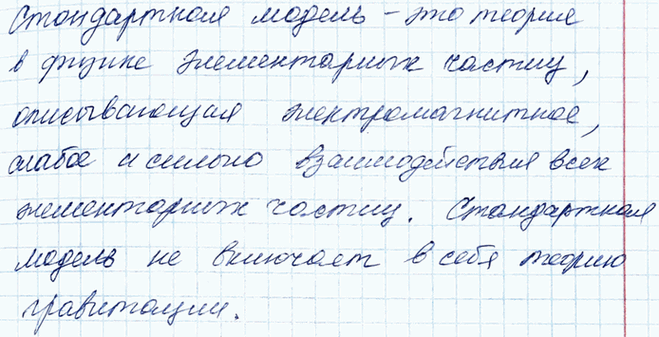 Стандартная модель – это теория
в физике элементарных частиц,
описывающая электромагнитное,
слабое и сильно взаимодействия всех
элементарных частиц. Стандартная
модель не включает в себя теорию
гравитации.